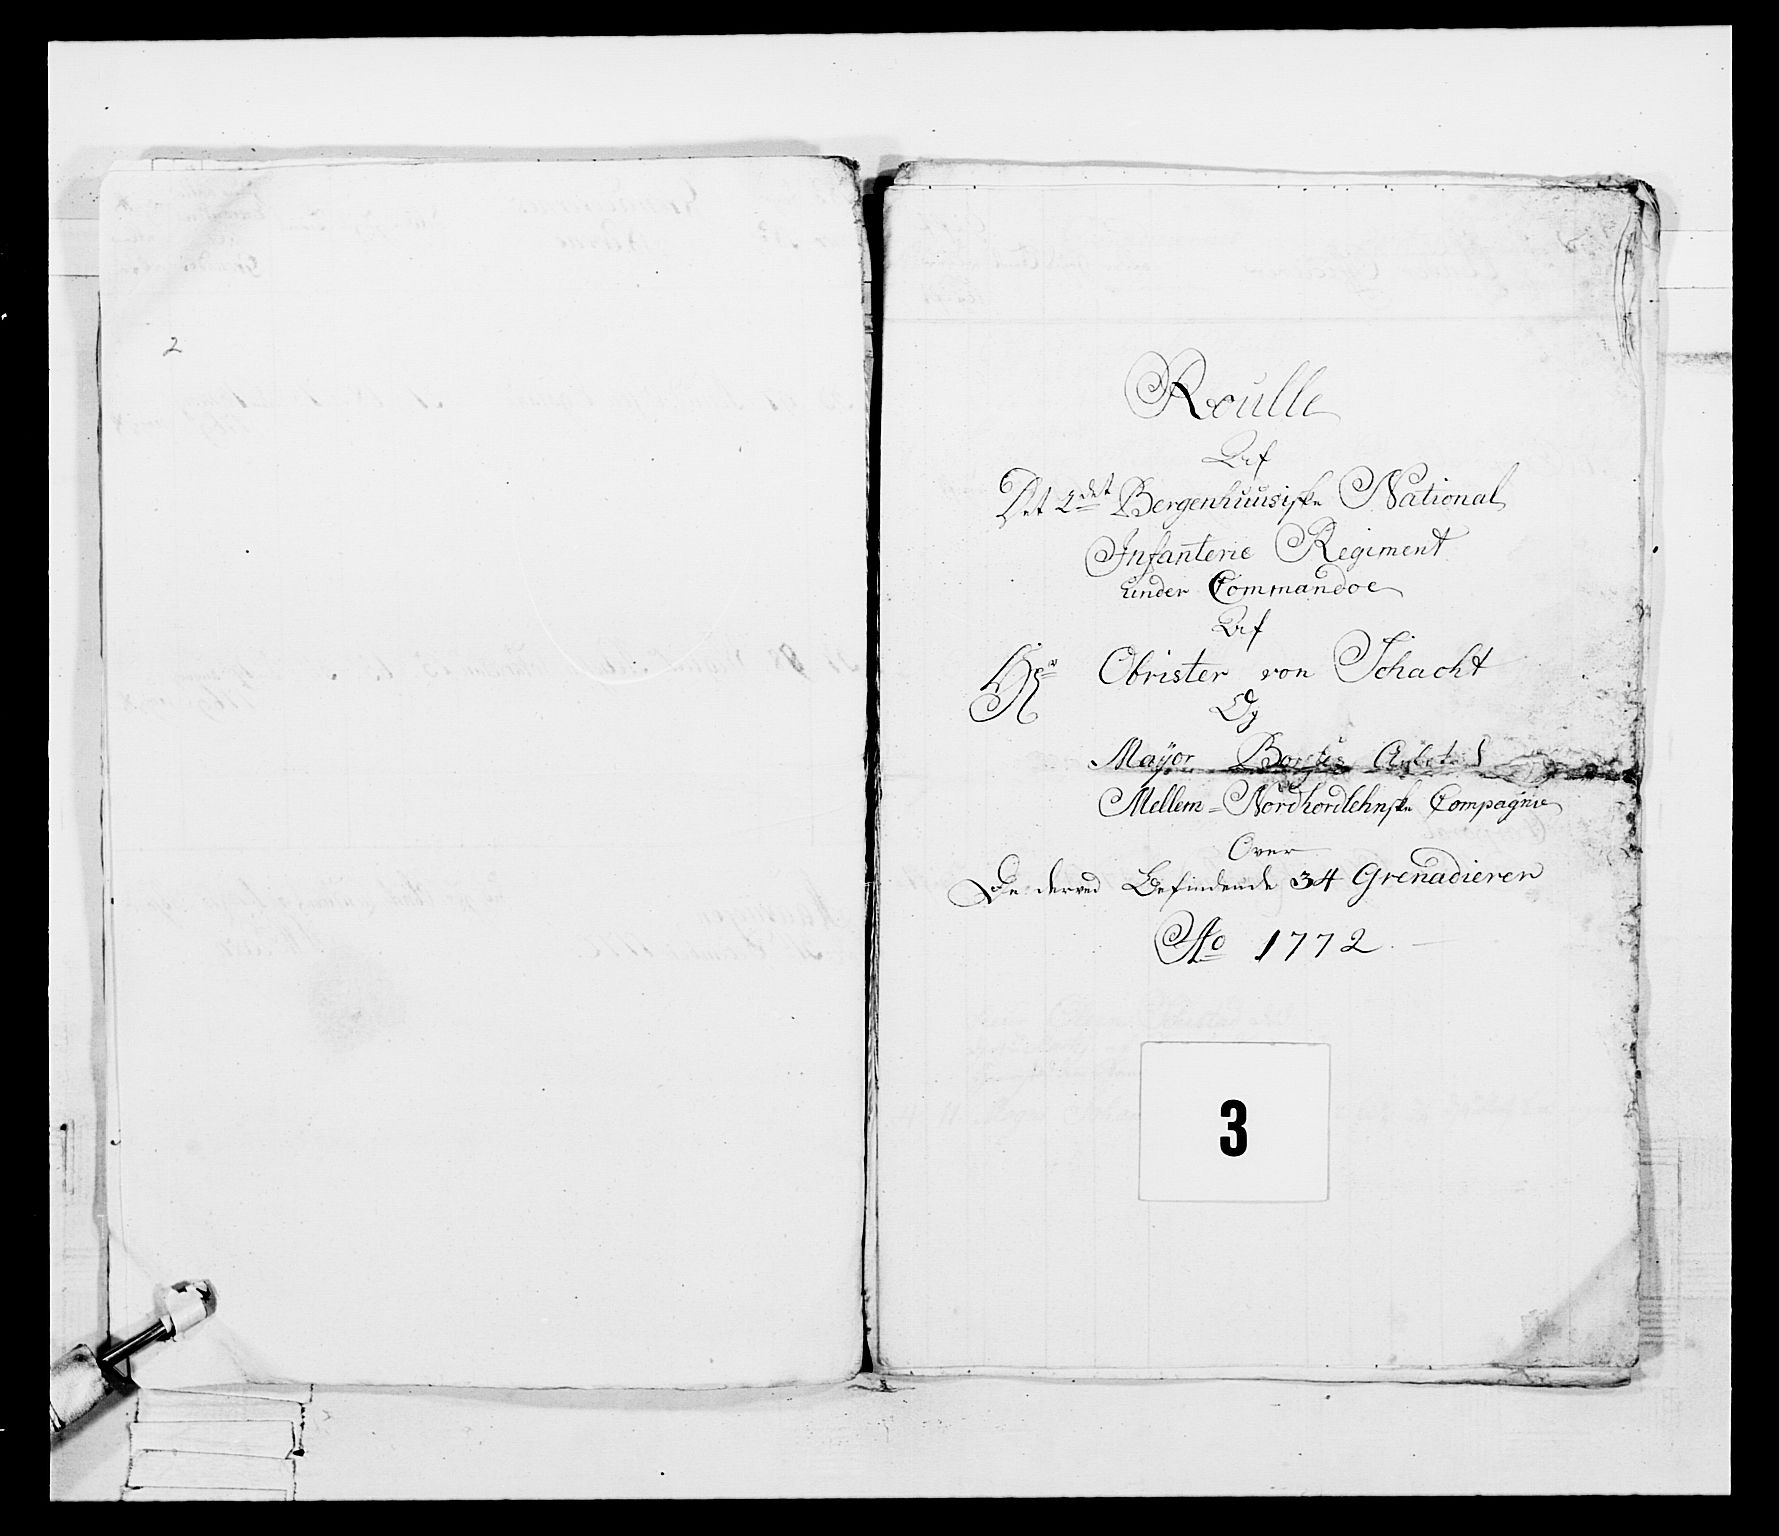 2
Roulle
Af
Det 2det Bergenhuusiske National
Infanterie Regiment
under Commandoe
Af
Hr Obrister von Schacht
Og
Mayor
Mellem=Nordhordlehnske Compagnie
Over
De derved Befindende 34 Grenadierer
Ao 1772.
3